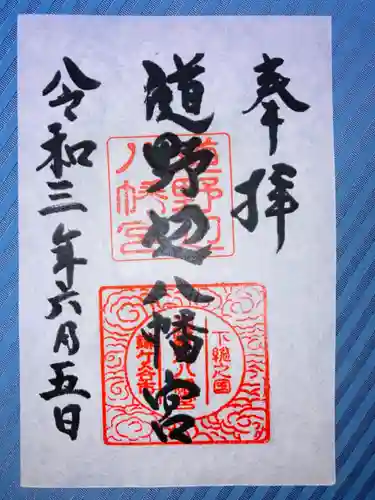 奉拝
道野辺八幡宮
令和三年六月五日
道野辺八幡宮
下総之国
八幡宮